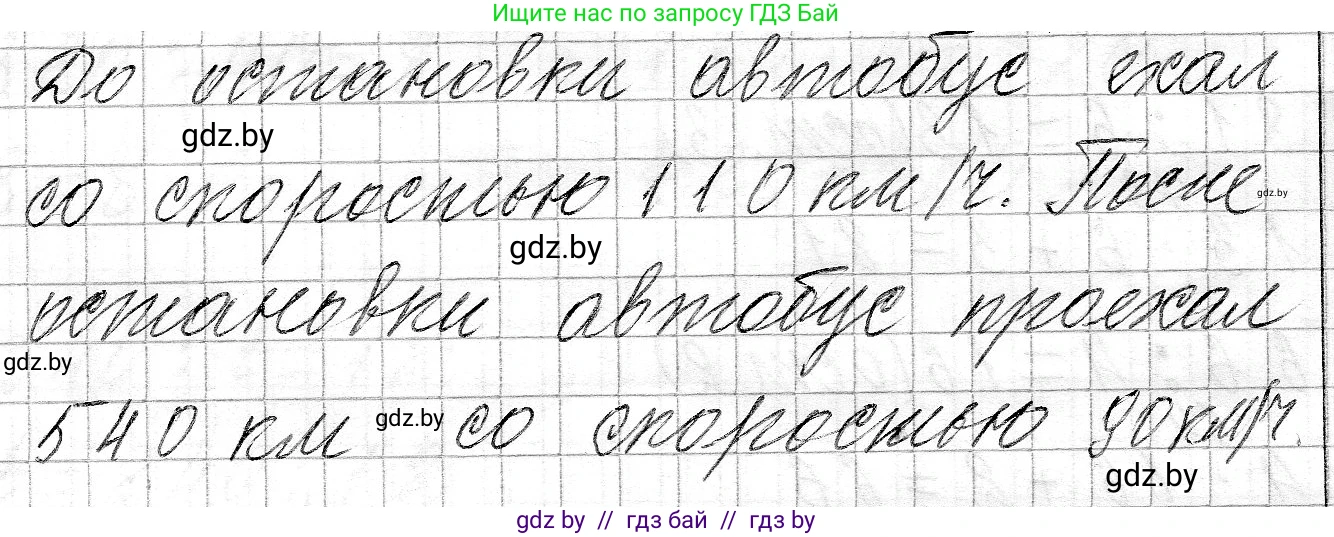 Ищите нас по запросу ГДЗ Бай
До остановки автобус ехал
gdz.by
со скоростью 110 км/ч. После
gdz.by
gdz.by
остановки автобус проехал
gdz.by
540 км со скоростью 90 км/ч.
gdz.by
gdz.by
gdz by // гдз бай // гдз by